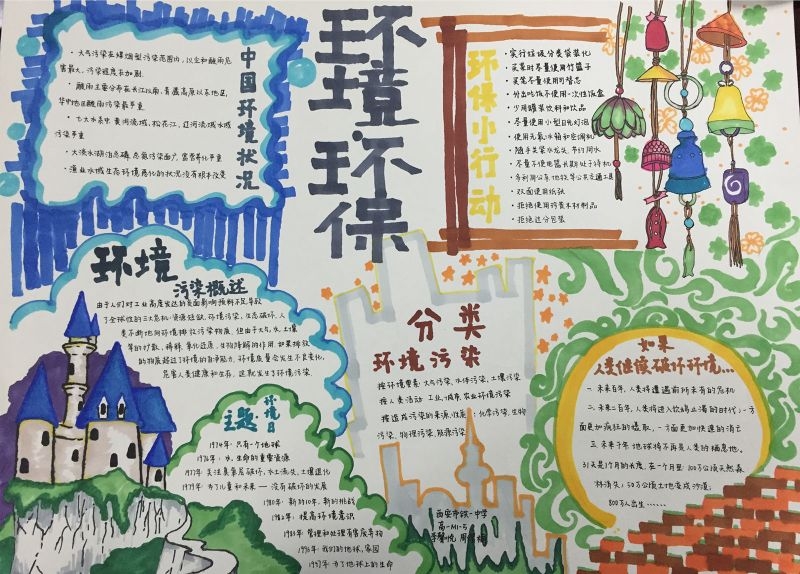 环境·环保
中国环境状况
·大气污染在煤烟型污染范围内,以尘和酸雨危
害最大,污染程度在加剧.
酸雨主要分布在长江以南,青藏高原以东地区,
华中地区酸雨污染最严重
·七大水系中黄河流域,松花江,辽河流域水域
污染严重
·大淡水湖泊总磷,总氮污染面广,富营养化严重
·渔业水域生态环境恶化的状况没有根本改变
环保小行动
·实行垃圾分类袋装化
·买菜时尽量使用竹篮子
·买笔尽量使用可替芯
·外出吃饭不使用一次性饭盒
·少用罐装饮料和饮品
·尽量使用小型日光灯泡
·使用无氟冰箱和空调机
·随手关紧水龙头,节约用水
·多利用公车,地铁等公共交通工具
·双面使用纸张
·拒绝使用珍贵木材制品
·拒绝过分包装
环境
污染概述
由于人们对工业高度发达的负面影响预料不足导致
了全球性的三大危机:资源短缺,环境污染,生态破坏.人
类不断地向环境排放污染物质.但由于大气,水,土壤
等的扩散,稀释,氧化还原,生物降解的作用.如果排放
的物质超过了环境的自净能力,环境质量会发生不良变化,
危害人类健康和生存,这就发生了环境污染.
环境日
主题
1974年:只有一个地球
1976年:水,生命的重要资源
1977年:关注臭氧层破坏,水土流失,土壤退化
1979年:为了儿童和未来——没有破坏的发展
1980年:新的10年,新的挑战
1982年:提高环境意识
1983年:管理和处理有害废弃物
我们的地球,家园
1997年:为了地球上的生命
分类
环境污染
按环境要素:大气污染,水体污染,土壤污染
按人类活动:工业,城市,农业环境污染
按造成污染的来源,性质:化学污染,生物
污染,物理污染
西安市铁一中学
如果
人类继续破坏环境…
一.未来百年,人类将遭遇前所未有的危机
二.未来二百年,人类将进入饮鸩止渴的时代,一方
面更加疯狂的猎取,一方面更加快速的消亡
三.未来千年,地球将不再是人类的栖息地.
31天是1个月的长度,在一个月里:100万公顷天然森
林消失;50万公顷土地变成沙漠;
800万人出生……